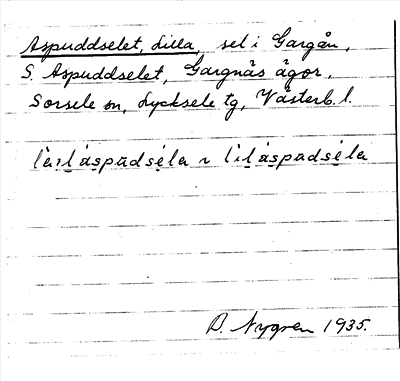 Aspuddselet, Lilla, sel i Gargån,
S. Aspuddselet, Gargnäs ägor,
Sorsele sn, Lycksele tg, Västerb. l.
D. Nygren 1935.